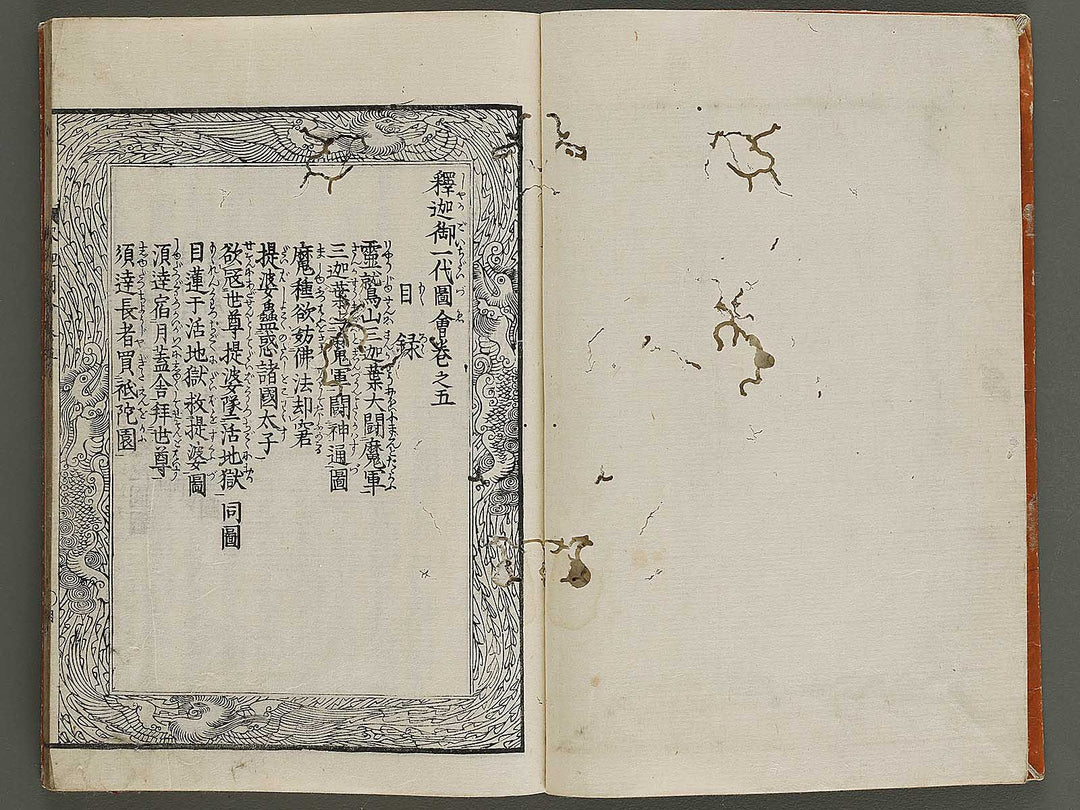 釋迦御一代圖會卷之五
目録
靈鷲山三迦葉大闘魔軍
三迦葉与魔軍闘神通圖
魔種欲妨佛法却窘
提婆蠱惑諸國太子
欲寇世尊提婆墜活地獄 同圖
目蓮于活地獄救提婆圖
須達宿月蓋舎拜世尊
須達長者買祗陀園